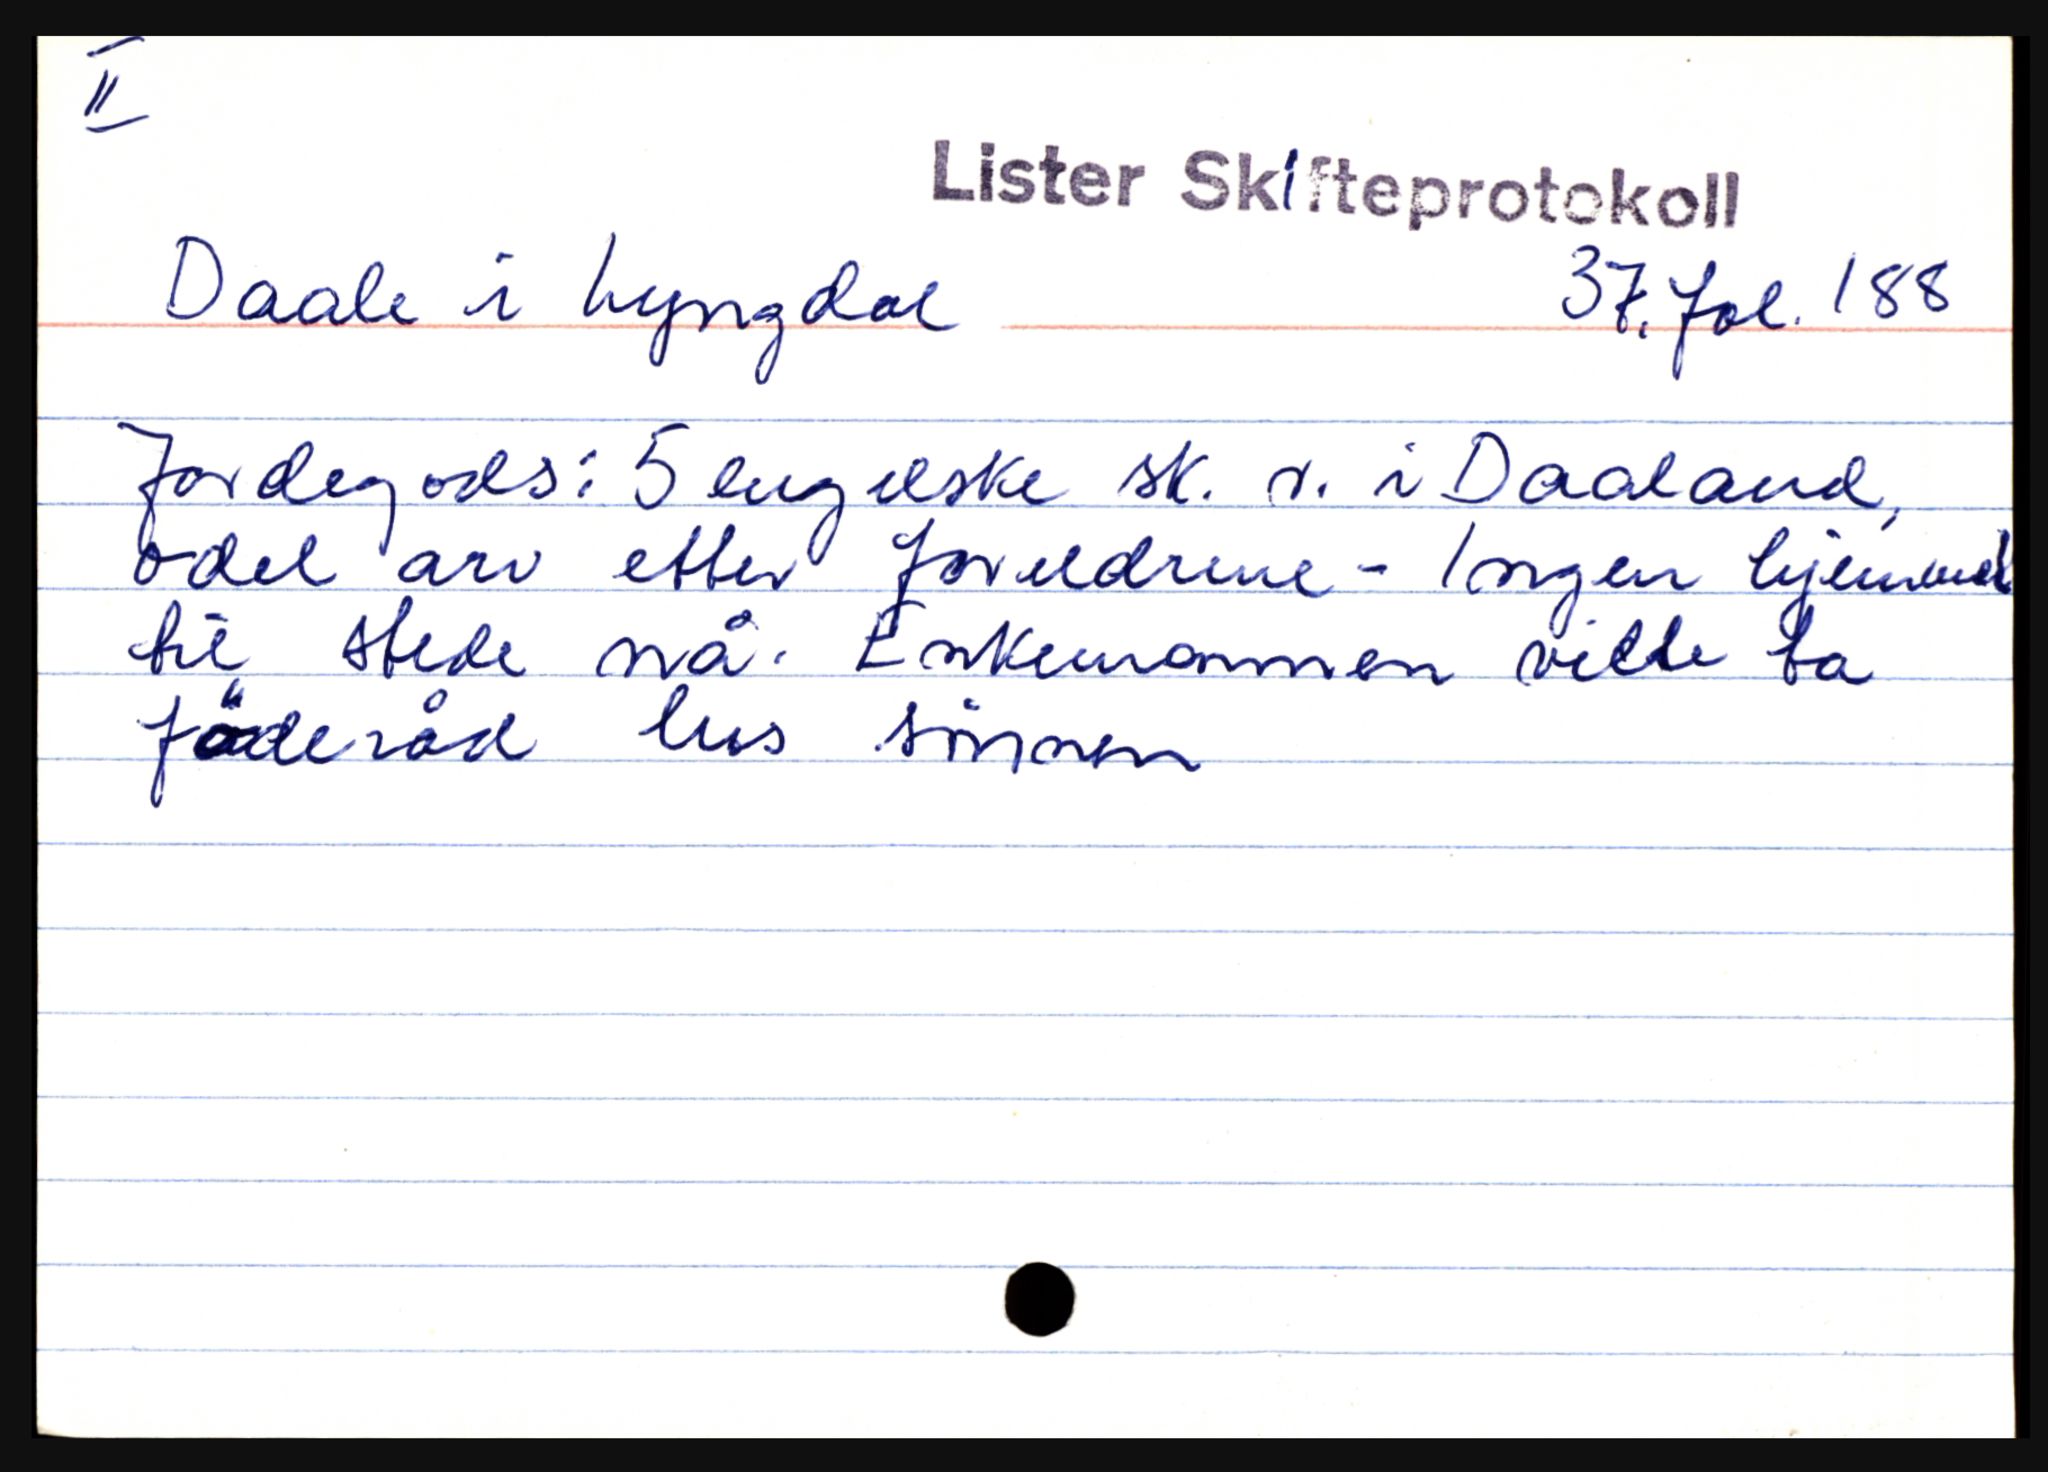 II
Lister Skifteprotokoll
Daale i Lyngdal 37. fol. 188
Jordegods: 5 engelske sk. r. i Daaland,
odel arv etter foreldrene - Ingen hjemmel
til stede nå. Enkemannen vilde ta
föderåd hos sönnen